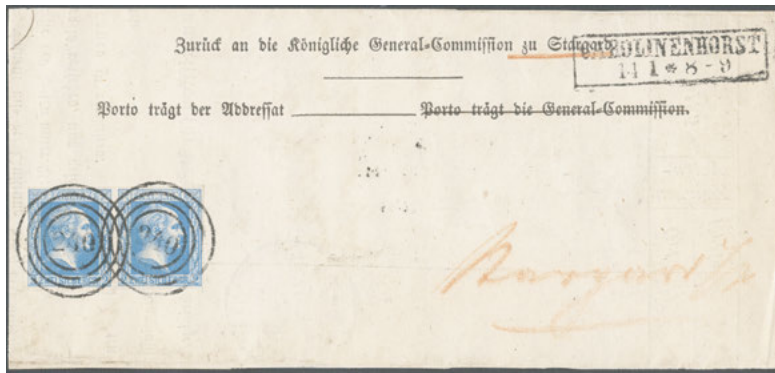 Zurück an die Königliche General-Commission zu Stargard.
CAROLINENHORST
14 1 * 8-9
Porto trägt der Addressat ____________ Porto trägt die General-Commission.
240 240
Stargard